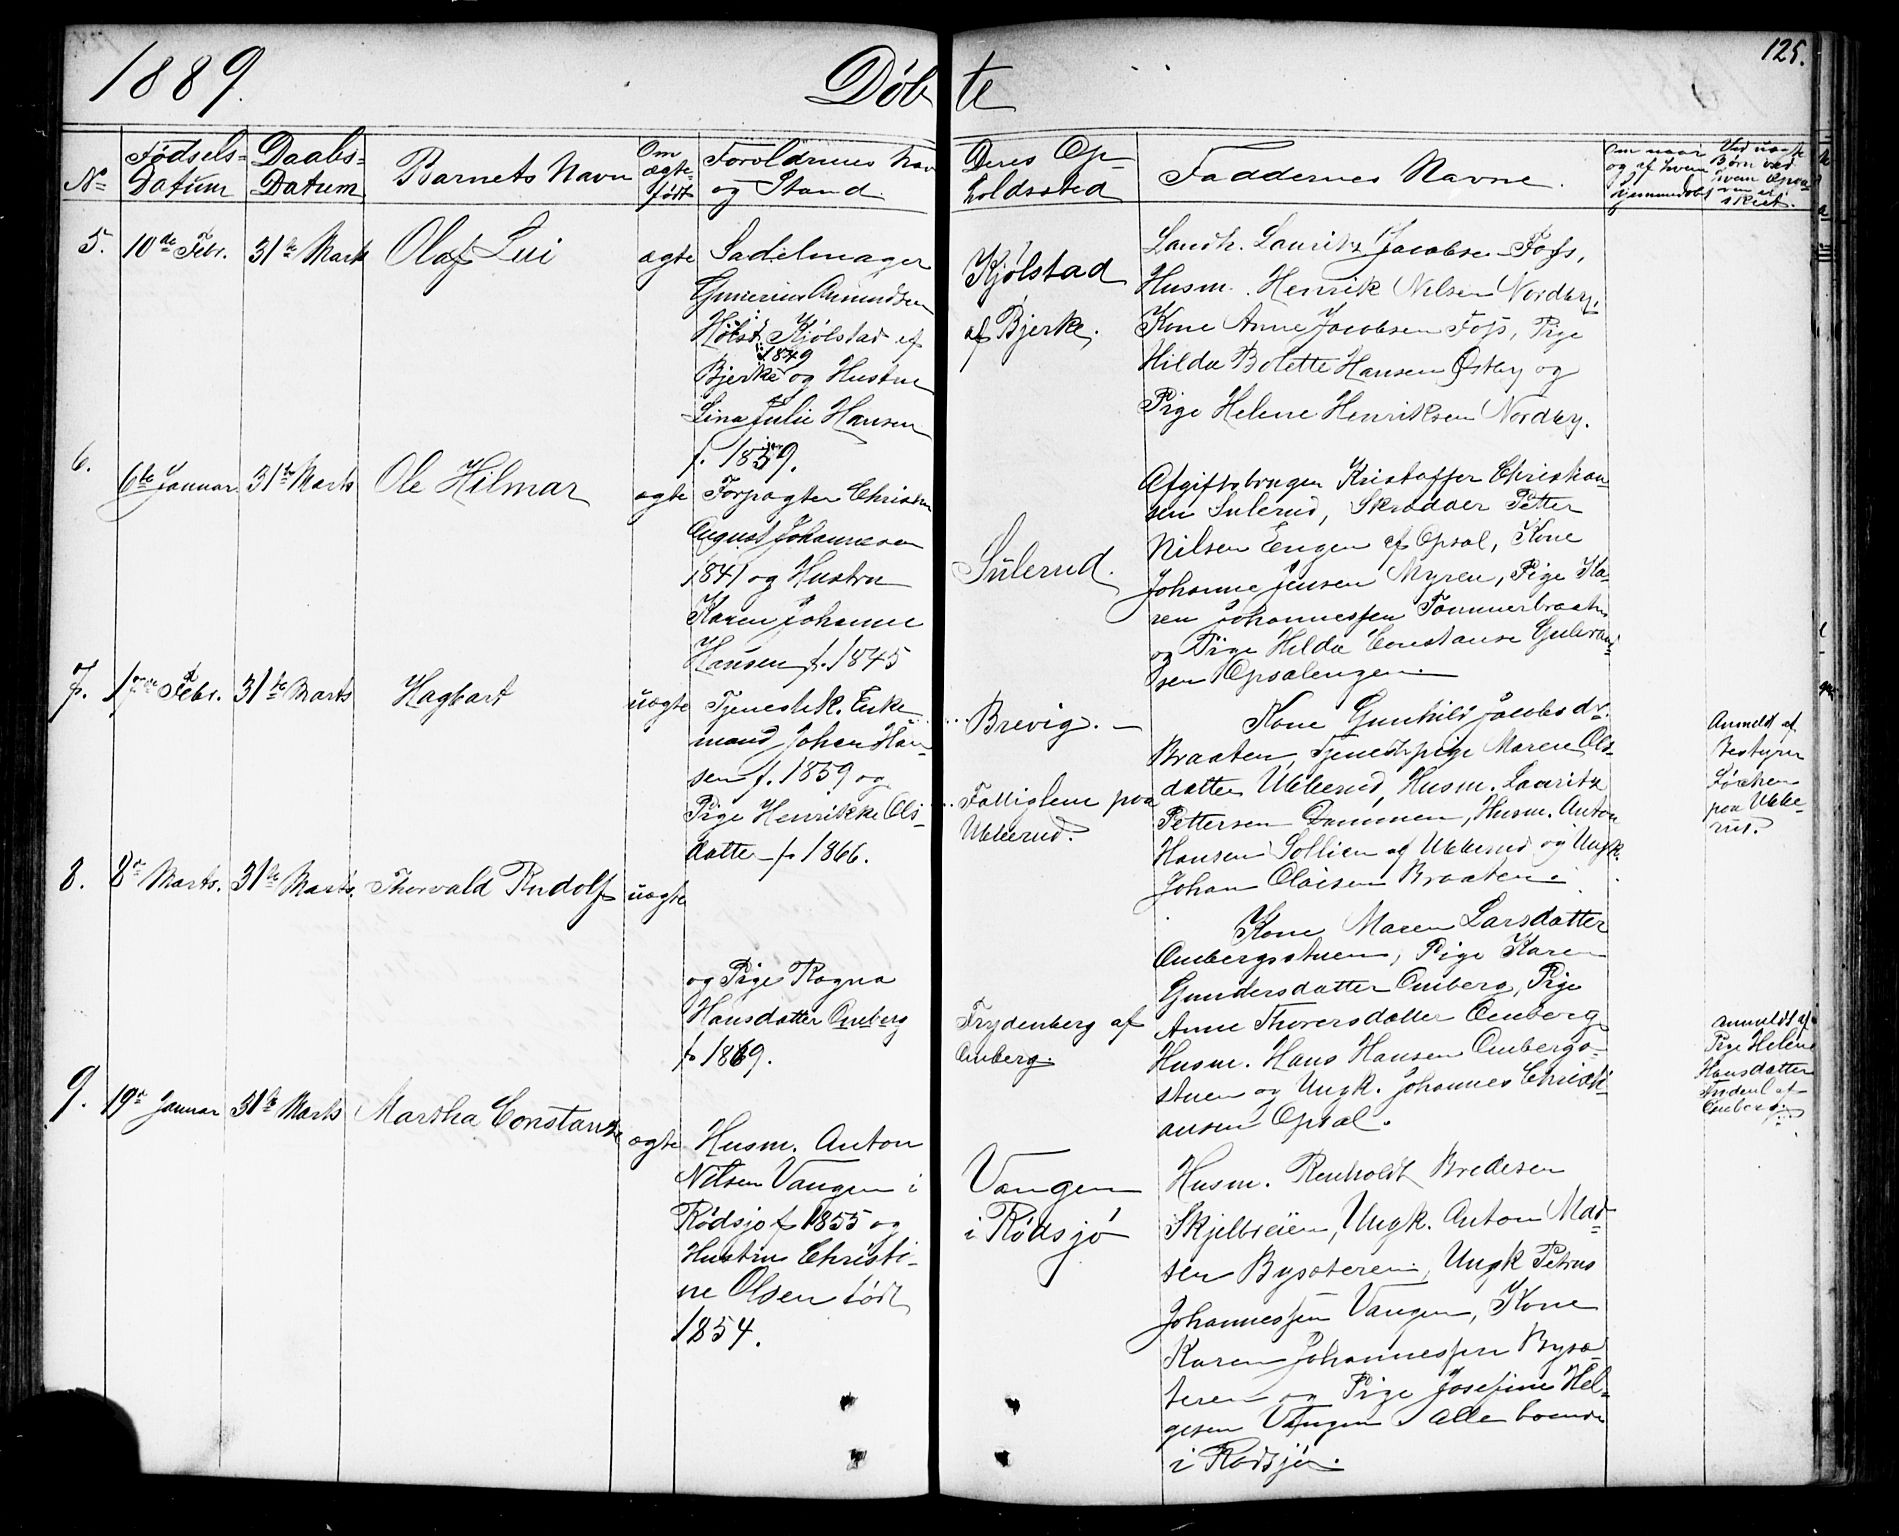 1889.
Døbte
125.
No
Fødsels-
Datum
Daabs-
Datum
Barnets Navn
Om
ægte-
født
Forældrenes Navn
og Stand
Deres Op-
holdssted
Faddernes Navne.
5.
10de Febr.
31te Marts
Olaf Lui
ægte
Sadelmager
Gunerius Amundsen
Holst, Kjølstad af
1849
Bjerke og Hustru
Lina Julie Hansen
f. 1859.
Kjølstad
af Bjerke.
Landh. Lauritz Jacobsen Foss,
Husm. Henrik Nilsen Nordby,
Kone Anne Jacobsen Foss, Pige
Hilda Bolette Hansen Østby og
Pige Helene Henriksen Nordby.
6.
6te Januar
31te Marts
Ole Hilmar
ægte
Forpagter Christian
August Johannesen
1841 og Hustru
Karen Johanne
Hansen f. 1845
Sulerud.
Afgiftsbruger Kristoffer Christian-
sen Sulerud, Skrædder Petter
Nilsen Engen af Opsal, Kone
Johanne Jensen Myren, Pige Ka-
ren Johannessen Tømmerbraaten
og Pige Hilda Constanse Gulbrand-
sen Opsalengen.
7.
1ste Febr.
31te Marts
Hagbart
uægte
Tjenestek. Enke-
mand Johan Han-
sen f. 1859 og
Pige Henrikke Ols-
datter f. 1866.
Brevig.
Fattiglem paa
Ubberud.
Kone Gunhild Jacobsdr.
Braaten, Tjenestepige Maren Ols-
datter Ubberud, Husm. Lauritz
Pettersen Dammen, Husm. Anton
Hansen Sollien af Ubberud og Ungk.
Johan Olaisen Braaten.
Anmeld af
Bestyrer
Løchen
paa Ubbe-
rud.
8.
8de Marts.
31te Marts.
Thorvald Rudolf
uægte
og Pige Ragna
Hansdatter Omberg
f. 1869.
Frydenberg af
Omberg.
Kone Maren Larsdatter
Ombergsstuen, Pige Karen
Gundersdatter Omberg, Pige
Anne Thorersdatter Omberg
Husm. Hans Hansen Ombergs-
stuen og Ungk. Johannes Christi-
ansen Opsal.
anmeldt af
Pige Helene
Hansdatter
Frydenb. af
Omberg.
9.
19de Januar
31te Marts
Martha Constanse
ægte
Husm. Anton
Nilsen Vangen i
Rødsjø f. 1855 og
Hustru Christi-
ne Olsen født
1854.
Vangen
i Rødsjø
Husm. Renholdt Bredesen
Skjelbreien, Ungk. Anton Mad-
sen Bysæteren, Ungk Petrus
Johannessen Vangen, Kone
Karen Johannessen Bysæ-
teren og Pige Josefine Hel-
gesen Vangen alle boende
i Rødsjø.